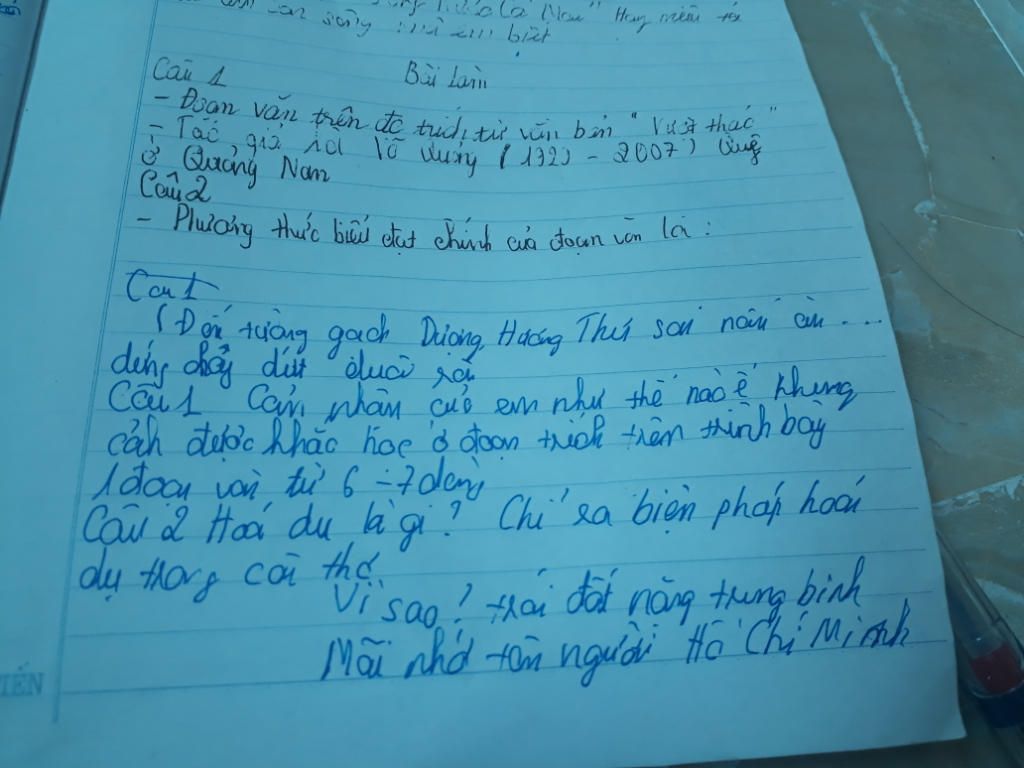 sông mà em biết
Bài làm
Câu 1
- Đoạn văn trên đc trích từ văn bản "Vượt thác"
- Tác giả là Võ Quảng (1920 - 2007) Quê
ở Quảng Nam
Câu 2
- Phương thức biểu đạt chính của đoạn văn là:
Câu 1
(Đến Dượng Hương Thư sai nấu ăn ...
đứng chảy đứt đuôi rắn
Câu 1 Cảm nhận của em như thế nào ề khung
cảnh được khắc học ở đoạn trích trên trình bày
1 đoạn văn từ 6 - 7 dòng
Câu 2 Hoá dụ là gì? Chỉ ra biện pháp hoán
dụ trong câu thơ
Vì sao? trái đất nặng trung bình
Mãi nhớ tên người Hồ Chí Minh